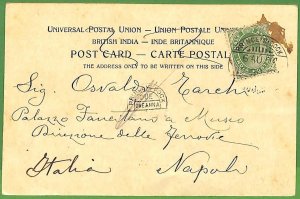 UNIVERSAL POSTAL UNION – UNION POSTALE UNIVERSELLE
BRITISH INDIA – INDE BRITANNIQUE
POST CARD – CARTE POSTALE
THE ADDRESS ONLY TO BE WRITTEN ON THIS SIDE
Sig. Osvaldo
Palazzo a Museo
Direzione delle Ferrovie
Italia Napoli